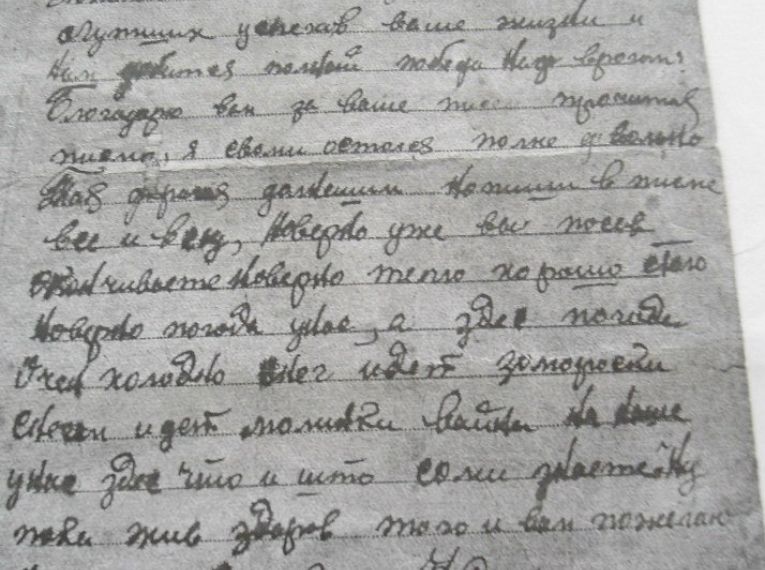 лучших успехов ваше жизни и
Нам добится полной победи над врогом.
Благодарю вам за ваше писмо прочитав
писмо, я своми остался полне довольно
Моя дорогая напиши в писме
все и всех, Новерно уже вы посев
окончиваете новерно тепло хорошо стало
Новерно погода у нас, а здес погода
Очен холодно снег идет заморозки
снегом идет молинки вайны на наше
уже здес что и што соми знаете. Ну
пока жив здоров того и вам пожелаю